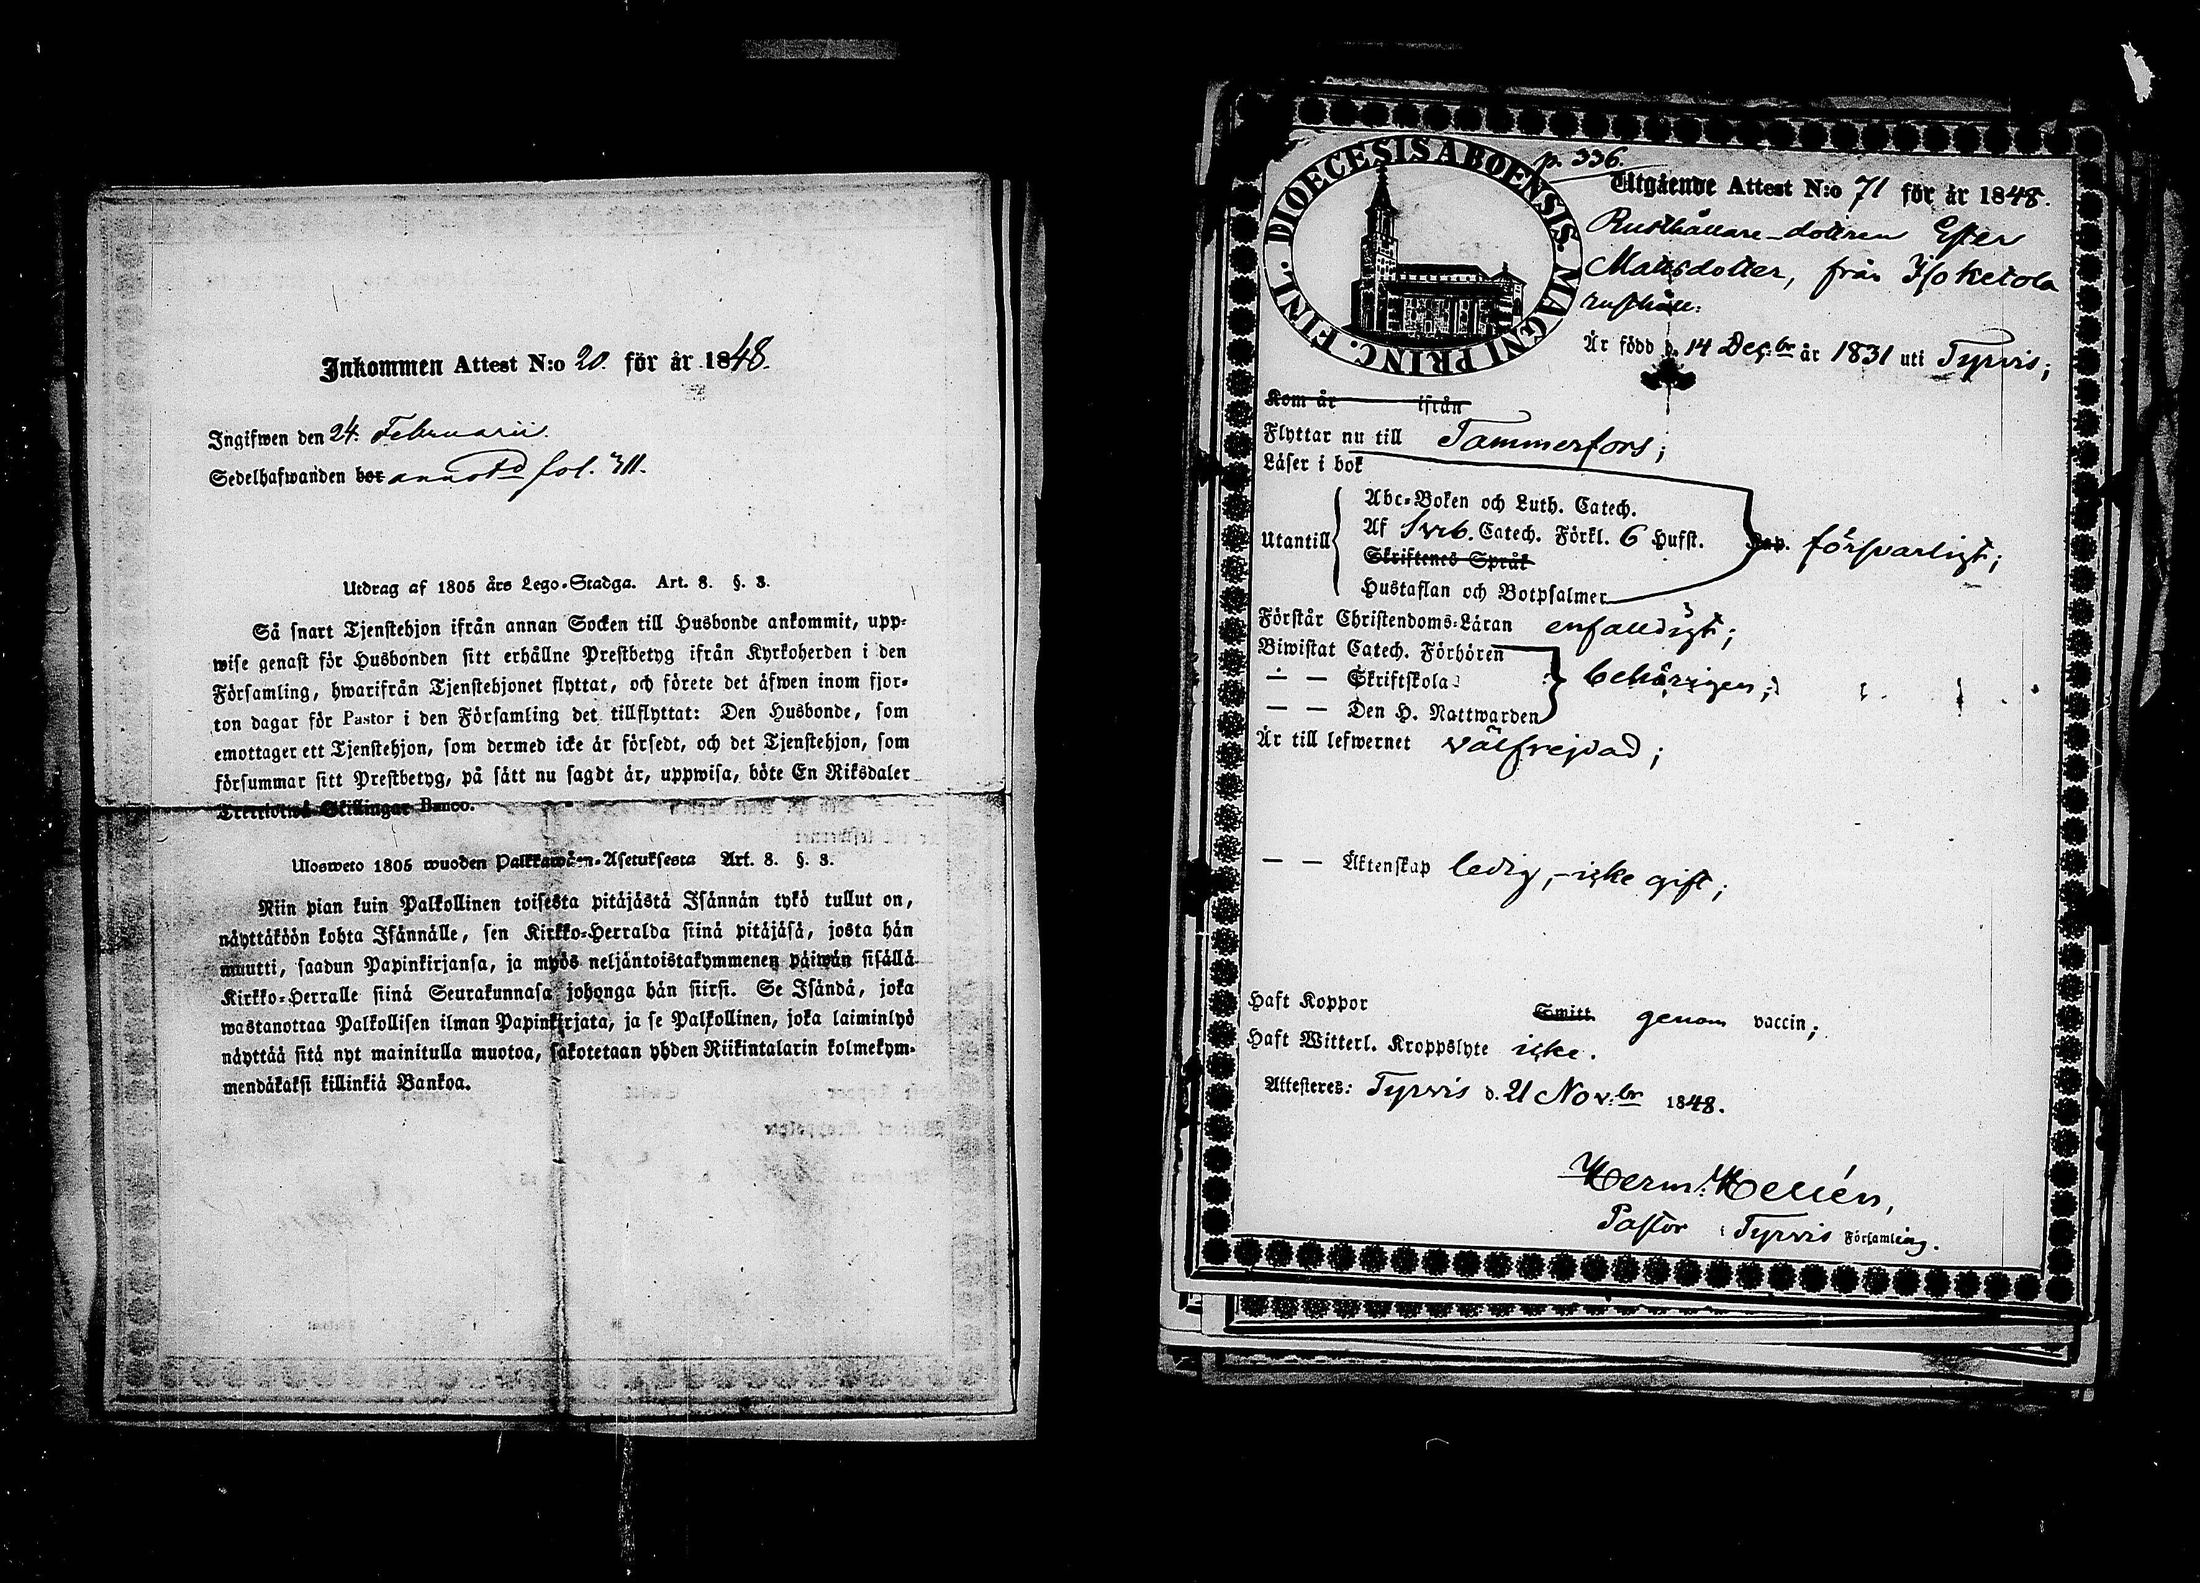 Inkommen Attest N:o 20. för år 1848.
Ingifwen den 24. Februarii.
Sedelhafwanden bor annotd fol. 311.
Utdrag af 1805 års Lego-Stadga. Art. 8. §. 3.
Så snart Tjenstehjon ifrån annan Socken till Husbonde ankommit, upp-
wise genast för Husbonden sitt erhållne Prestbetyg ifrån Kyrkoherden i den
Församling, hwarifrån Tjenstehjonet flyttat, och förete det äfwen inom fjor-
ton dagar för Pastor i den Församling det tillflyttat: Den Husbonde, som
emottager ett Tjenstehjon, som dermed icke är försedt, och det Tjenstehjon, som
försummar sitt Prestbetyg, på sätt nu sagdt är, uppwisa, böte En Riksdaler
Trettiotwå Skillingar Banco.
Ulosweto 1805 wuoden Palkkawäen-Asetuksesta Art. 8. §. 3.
Niin pian kuin Palkollinen toisesta pitäjästä Isännän tykö tullut on,
näyttäköön kohta Isännälle, sen Kirkko-Herralda siinä pitäjäsä, josta hän
muutti, saadun Papinkirjansa, ja myös neljäntoistakymmenen päiwän sisällä
Kirkko-Herralle siinä Seurakunnasa johonga hän siirsi. Se Isändä, joka
wastanottaa Palkollisen ilman Papinkirjata, ja se Palkollinen, joka laiminlyö
näyttää sitä nyt mainitulla muotoa, sakotetaan yhden Riikintalarin kolmekym-
mendäkaksi killinkiä Bankoa.
p. 336.
DIOECESIS ABOENSIS. MAGNI PRINC. FINL.
Utgående Attest N:o 71 för år 1848.
Rusthållare-dottren Ester
Mattsdotter, från Isoketola
rusthåll.
Är född d. 14 Dec:br år 1831 uti Tyrvis;
Kom år ifrån
Flyttar nu till Tammerfors;
Läser i bok
Utantill
Abc-Boken och Luth. Catech.
Af Svib. Catech. Förkl. 6 Hufst.
försvarligt;
Skriftenes Språk
Hustaflan och Botpsalmer
Förstår Christendoms-Läran enfaldigt;
Biwistat Catech. Förhören
— — Skriftskola behörigen;
— — Den H. Nattwarden
Är till lefwernet välfrejdad;
— — Äktenskap ledig, - icke gift;
Haft Koppor Smitt genom vaccin;
Haft Witterl. Kroppslyte icke.
Attesteres: Tyrvis d. 21 Nov:br 1848.
Herm: Hellén,
Pastor i Tyrvis Församling.